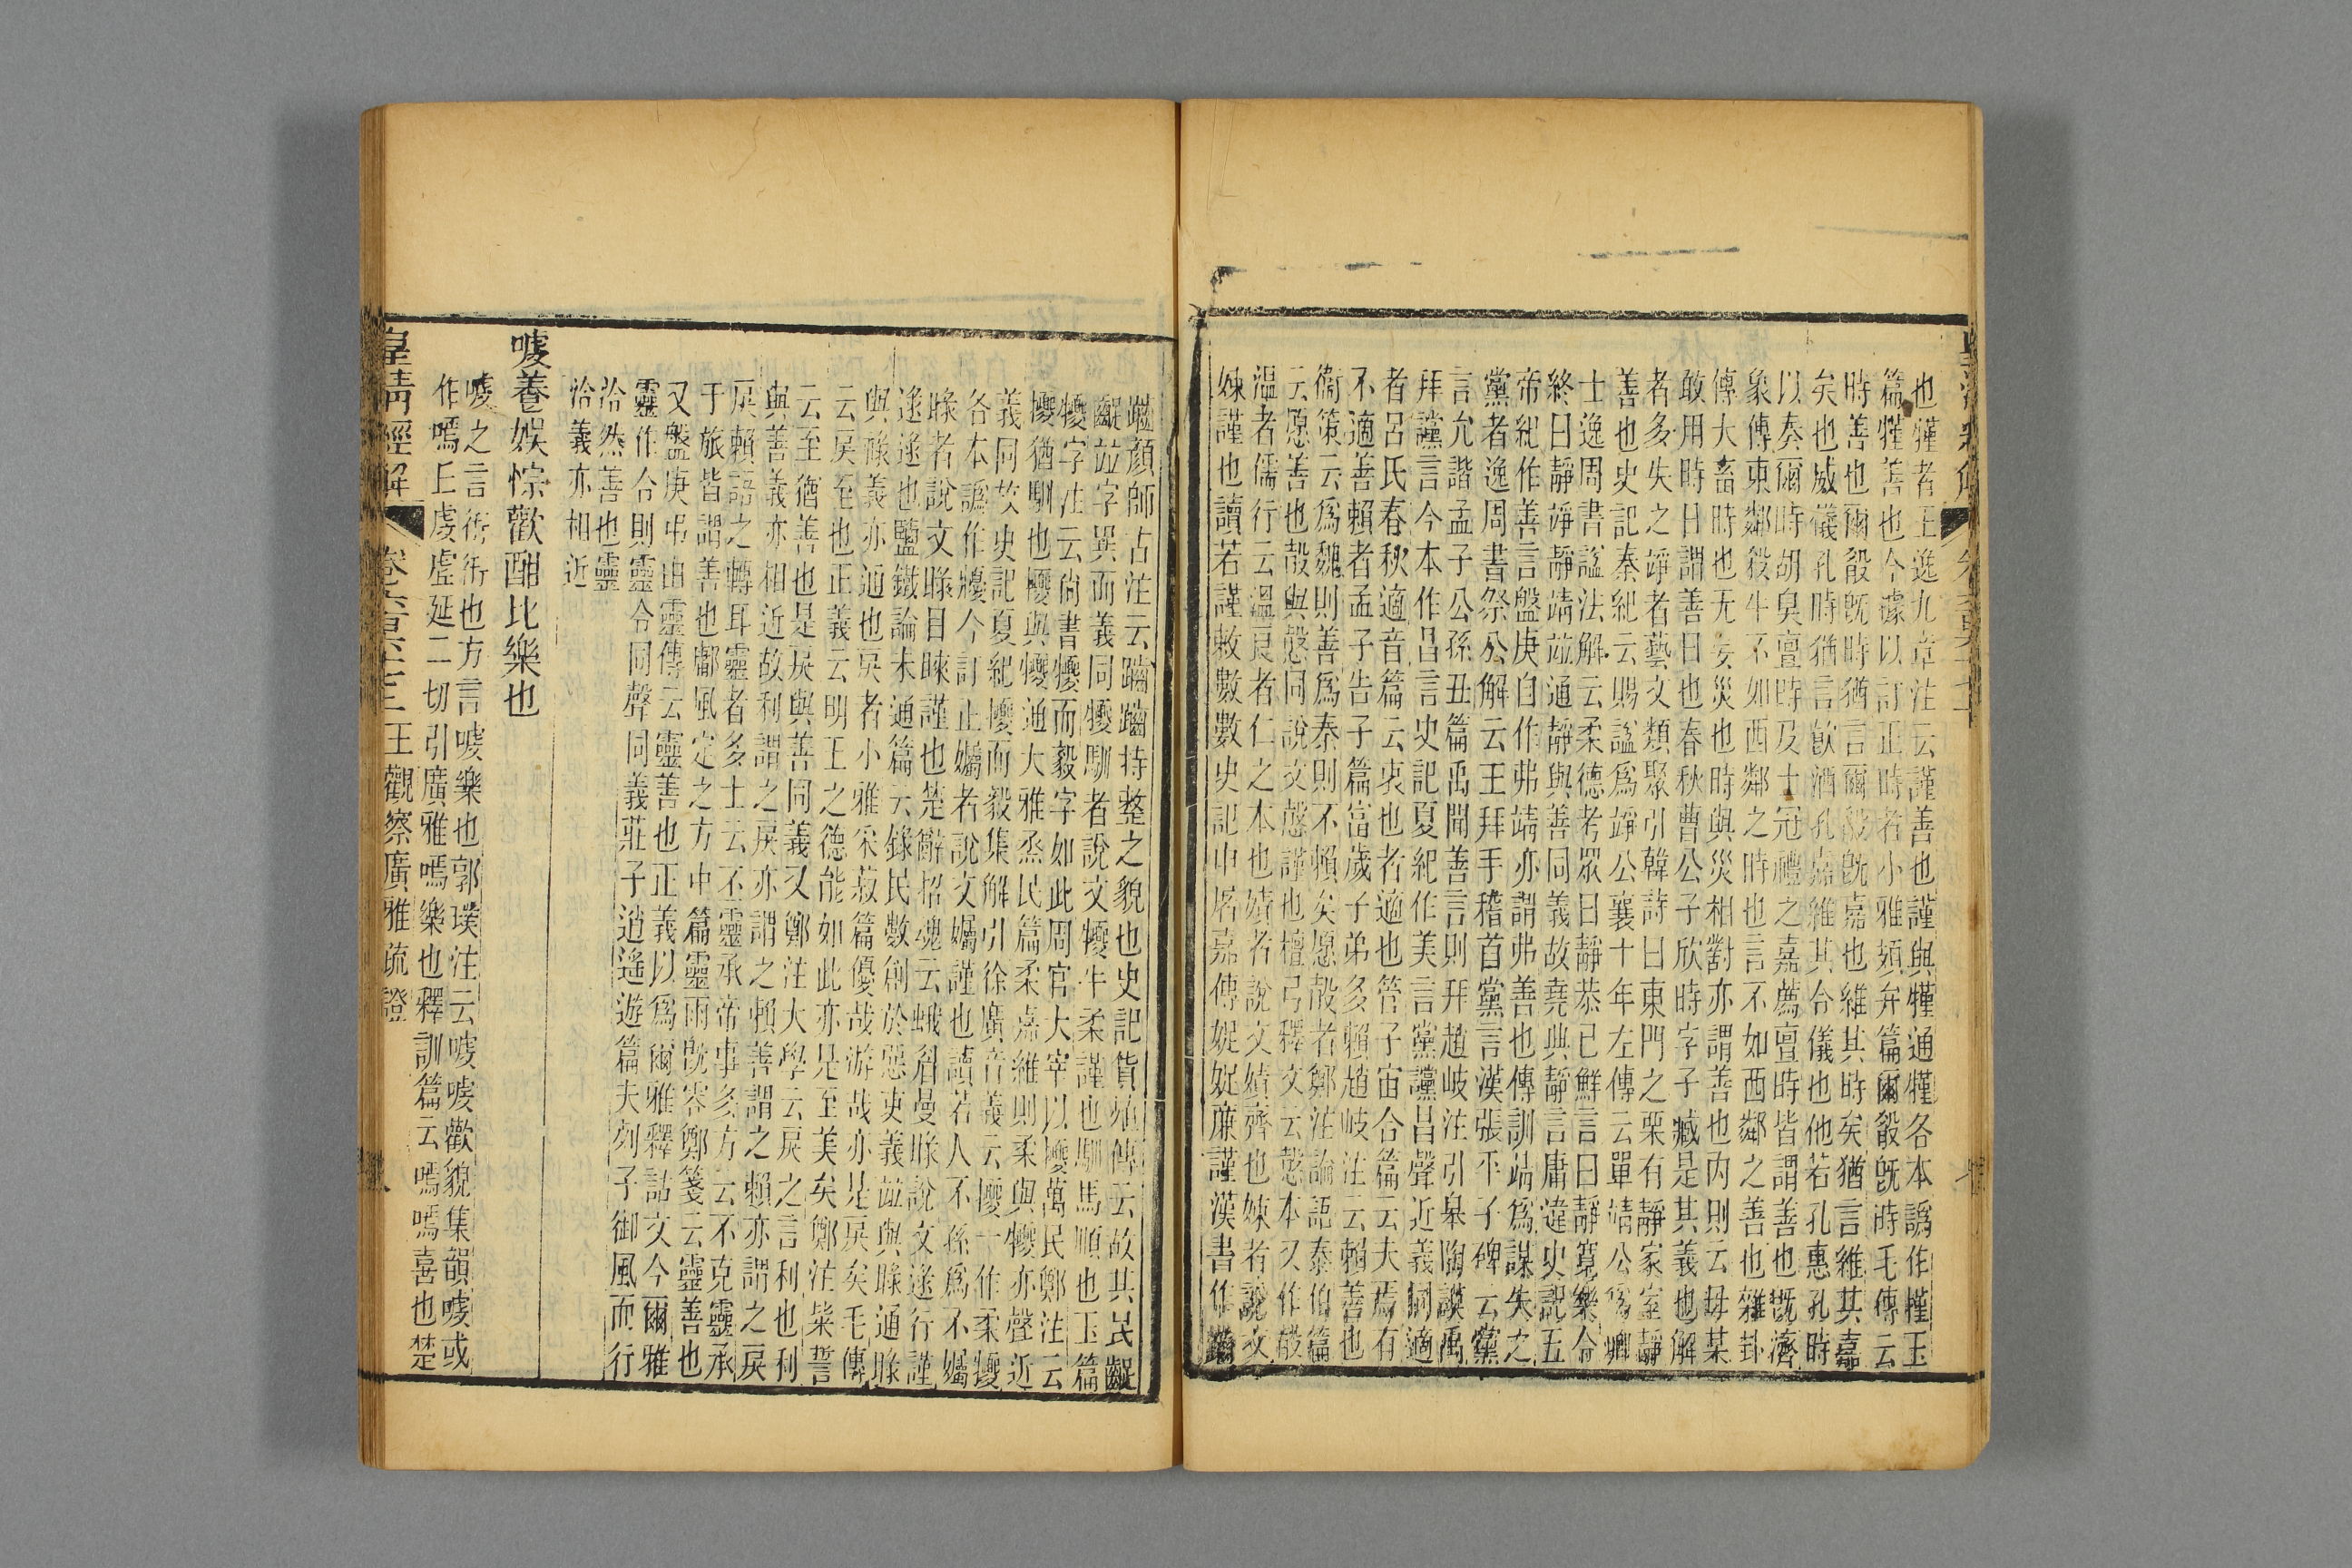 也㹌者王逸九章注云謹善也謹與㹌通㹌各本譌作槿玉
篇㹌善也今據以訂正時者小雅頍弁篇爾殽旣時毛傳云
時善也爾殽旣時猶言爾殽旣嘉也維其時矣猶言維其嘉
矣也威儀孔時猶言飮酒孔嘉維其令儀也他若孔惠孔時
以奏爾時胡臭亶時及士冠禮之嘉薦亶時皆謂善也旣濟
象傳東鄰殺牛不如西鄰之時也言不如西鄰之善也雜卦
傳大畜時也无妄災也時與災相對亦謂善也內則云毋某
敢用時日謂善日也春秋曹公子欣時字子臧是其義也解
者多失之竫者藝文類聚引韓詩曰東門之栗有靜家室靜
善也史記秦紀云賜謚爲竫公襄十年左傳云單靖公爲卿
士逸周書謚法解云柔德考眾曰靜恭已鮮言曰靜寬樂令
終曰靜竫靜靖竝通靜與善同義故堯典靜言庸違史記五
帝紀作善言盤庚自作弗靖亦謂弗善也傳訓靖爲謀失之
黨者逸周書祭公解云王拜手稽首黨言漢張平子碑云黨
言允諧孟子公孫丑篇禹聞善言則拜趙岐注引皋陶謨禹
拜讜言今本作昌言史記夏紀作美言黨讜昌聲近義同適
者呂氏春秋適音篇云衷也者適也管子宙合篇云夫焉有
不適善賴者孟子告子篇富歲子弟多賴趙岐注云賴善也
衞策云爲魏則善爲秦則不賴矣愿愨者鄭注論語泰伯篇
云愿善也愨與慤同說文愨謹也檀弓釋文云慤本又作殼
溫者儒行云溫良者仁之本也嫧者說文嫧齊也娕者說文
娕謹也讀若謹敕數數史記申屠嘉傳娖娖廉謹漢書作齱
齱顏師古注云齱齱持整之貌也史記貨殖傳云故其民齪
齪竝字異而義同㹛馴者說文㹛牛柔謹也馴馬順也玉篇
㹛字注云尙書㹛而毅字如此周官大宰以擾萬民鄭注云
擾猶馴也擾與㹛通大雅烝民篇柔嘉維則柔與㹛亦聲近
義同故史記夏紀擾而毅集解引徐廣音義云擾一作柔㹛
各本譌作犪今訂正孎者說文孎謹也讀若人不孫爲不孎
睩者說文睩目睞謹也楚辭招魂云蛾眉曼睩說文逯行謹
逯逯也鹽鐵論未通篇云錄民數創於惡吏義竝與睩通睩
與祿義亦通也戾者小雅采菽篇優哉游哉亦是戾矣毛傳
云戾至也正義云明王之德能如此亦是至美矣鄭注粊誓
云至猶善也是戾與善同義又鄭注大學云戾之言利也利
與善義亦相近故利謂之戾亦謂之賴善謂之賴亦謂之戾
戾賴語之轉耳靈者多士云丕靈承帝事多方云不克靈承
于旅皆謂善也鄘風定之方中篇靈雨旣零鄭箋云靈善也
又盤庚弔由靈傳云靈善也正義以爲爾雅釋詁文今爾雅
靈作令則靈令同聲同義莊子逍遙遊篇夫列子御風而行
泠然善也靈
泠義亦相近
嘜養娛悰歡酣比樂也
嘜之言衎衎也方言嘜樂也郭璞注云嘜嘜歡貌集韻嘜或
作嘕上虔虛延二切引廣雅嘕樂也釋訓篇云嘕嘕喜也楚
皇淸經解 卷六百六十七上 王觀察廣雅疏證